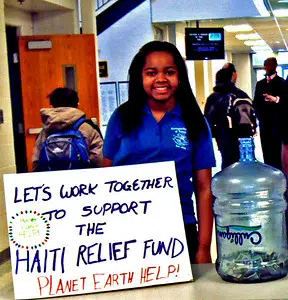 LET'S WORK TOGETHER
TO SUPPORT
THE
HAITI RELIEF FUND
PLANET EARTH HELP!
Culligan